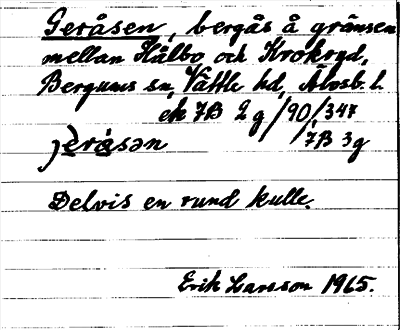 Geråsen, bergås å gränsen
mellan Hålbo och Krokryd,
Bergums sn, Vättle hd, Älvsb. l.
ek 7B 2g /90/347
jeråsən 7B 3g
Delvis en rund kulle.
Erik Larsson 1965.